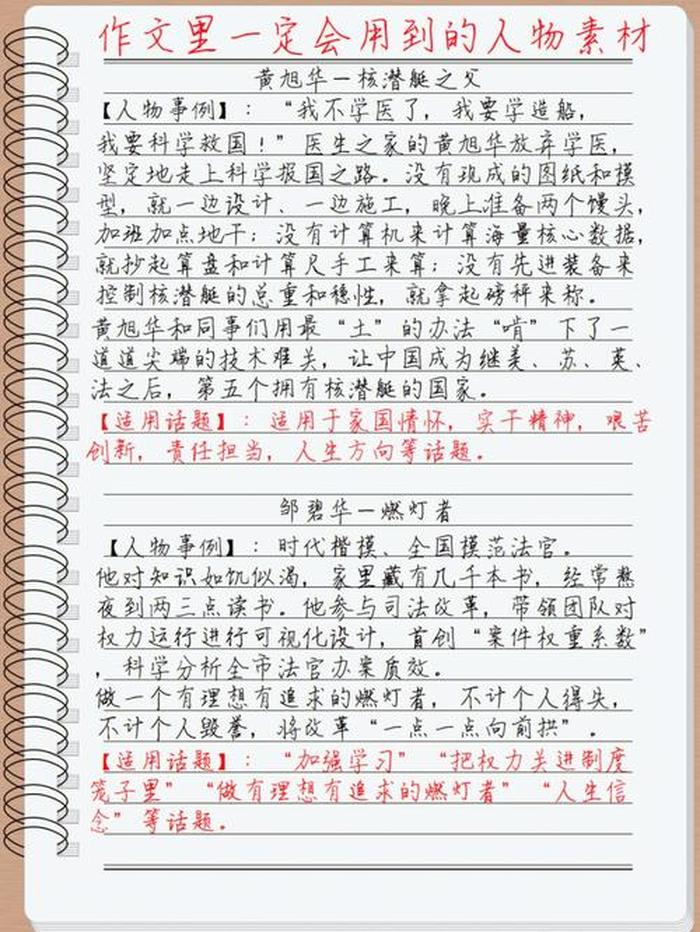 作文里一定会用到的人物素材
黄旭华—核潜艇之父
【人物事例】：“我不学医了，我要学造船，
我要科学救国！”医生之家的黄旭华放弃学医，
坚定地走上科学报国之路。没有现成的图纸和模
型，就一边设计、一边施工，晚上准备两个馒头，
加班加点地干；没有计算机来计算海量核心数据，
就抄起算盘和计算尺手工来算；没有先进装备来
控制核潜艇的总重和稳性，就拿起磅秤来称。
黄旭华和同事们用最“土”的办法“啃”下了一
道道尖端的技术难关，让中国成为继美、苏、英、
法之后，第五个拥有核潜艇的国家。
【适用话题】：适用于家国情怀，实干精神，艰苦
创新，责任担当，人生方向等话题。
邹碧华—燃灯者
【人物事例】：时代楷模、全国模范法官。
他对知识如饥似渴，家里藏有几千本书，经常熬
夜到两三点读书。他参与司法改革，带领团队对
权力运行进行可视化设计，首创“案件权重系数”
，科学分析全市法官办案质效。
做一个有理想有追求的燃灯者，不计个人得失，
不计个人毁誉，将改革“一点一点向前拱”。
【适用话题】：“加强学习”“把权力关进制度
笼子里”“做有理想有追求的燃灯者”“人生信
念”等话题。